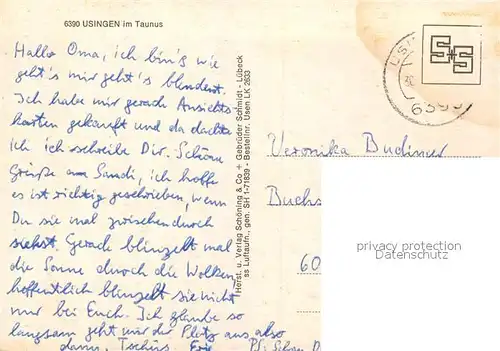 6390 USINGEN im Taunus
Hallo Oma, ich bin's wie
geht's mir geht's blendent.
Ich habe mir gerade Ansichts
karten gekauft und da dachte
ich ich schreibe Dir. Schöne
Grüße am Sandi, ich hoffe
es ist richtig geschrieben, wenn
Du sie mal zwischendurch
siehst. Gerade blinzelt mal
die Sonne durch die Wolken
hoffentlich blinzelt sie nicht
nur bei Euch. Ich glaube so
langsam geht mir der Platz aus also
dann, Tschüs. PS: Schöne
Horst. u. Verlag Schöning & Co + Gebrüder Schmidt - Lübeck
ss Luftaufn. gen. SH 1-71/839 - Bestellnr. Usen LK 2633
S+S
Veronika Budimer
Buchs
60
privacy protection
watermark